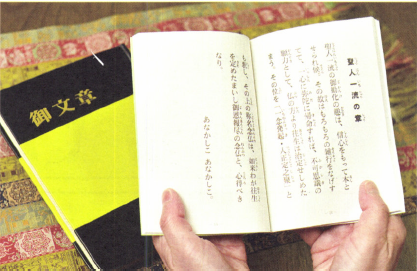 御文章
聖人一流の章
聖人一流の御勧化の趣は、信心をもって本と
せられ候。その故はもろもろの雑行をなげす
てて、一心に弥陀に帰命すれば、不可思議の
願力として、仏の方より往生は治定せしめた
まう。その位を「一念発起入正定之聚」と
も釈し、その上の称名念仏は、如来わが往生
を定めたまいし御恩報尽の念仏と、心得べき
なり。
あなかしこ あなかしこ。